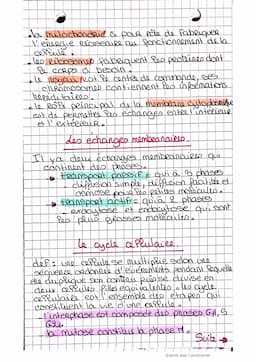 • la mitochondrie a pour rôle de fabriquer
l'énergie nécessaire au fonctionnement de la
cellule.
• les ribosomes fabriquent les protéines dont
le corps a besoin.
• le noyau est le centre de commande, ses
chromosomes contiennent les informations
héréditaires.
• le rôle principal de la membrane cytoplasmique
est de permettre les échanges entre l'intérieur
et l'extérieur.
Les échanges membranaires
Il y a deux échanges membranaires qui
contient des phases.
→ transport passif : qui a 3 phases
diffusion simple, diffusion facilitée et
osmose pour les petites molécules.
→ transport actif : qui a 2 phases
exocytose et endocytose qui sont
les plus grosses molécules.
Le cycle cellulaire
def : une cellule se multiplie selon une
séquence ordonnée d'évènements pendant laquelle
elle duplique son contenu puis se divise en
deux cellules filles équivalentes. Le cycle
cellulaire est l'ensemble des étapes qui
constituent la vie d'une cellule.
L'interphase est composée des phases G1, S,
G2.
la mitose constitue la phase M.
Suite →
Scanné avec CamScanner